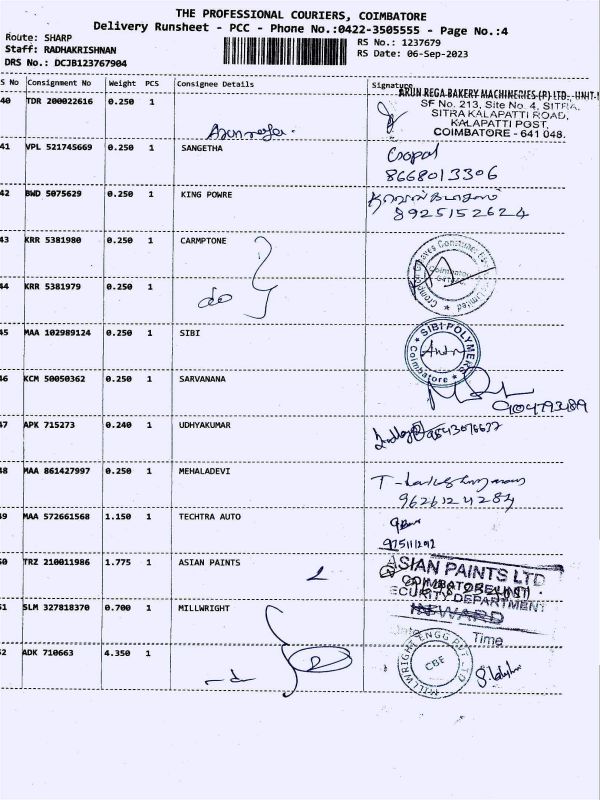 THE PROFESSIONAL COURIERS, COIMBATORE
Delivery Runsheet - PCC - Phone No.:0422-3505555 - Page No.:4
Route: SHARP
Staff: RADHAKRISHNAN
DRS No.: DCJB123767904
RS No.: 1237679
RS Date: 06-Sep-2023
S No Consignment No Weight PCS Consignee Details Signature
40 TDR 200022616 0.250 1
ARUN REGA BAKERY MACHINERIES (P) LTD., UNIT-I
SF No. 213, Site No. 4, SITRA,
SITRA KALAPATTI ROAD,
KALAPATTI POST,
COIMBATORE - 641 048.
41 VPL 521745669 0.250 1 SANGETHA Gopal
8668013306
42 BWD 5075629 0.250 1 KING POWRE
8925152624
43 KRR 5381980 0.250 1 CARMPTONE
Crompton Greaves Consumer Limited
Coimbatore
44 KRR 5381979 0.250 1 do
45 MAA 102989124 0.250 1 SIBI
SIBI POLYMERS
Coimbatore
46 KCM 50050362 0.250 1 SARVANANA
47 APK 715273 0.240 1 UDHYAKUMAR
48 MAA 861427997 0.250 1 MEHALADEVI
9626124284
49 MAA 572661568 1.150 1 TECHTRA AUTO
50 TRZ 210011986 1.775 1 ASIAN PAINTS
ASIAN PAINTS LTD
COIMBATORE
SECURITY DEPARTMENT
INWARD
Date Time
51 SLM 327818370 0.700 1 MILLWRIGHT
52 ADK 710663 4.350 1
MILLWRIGHT ENGG PVT LTD
CBE